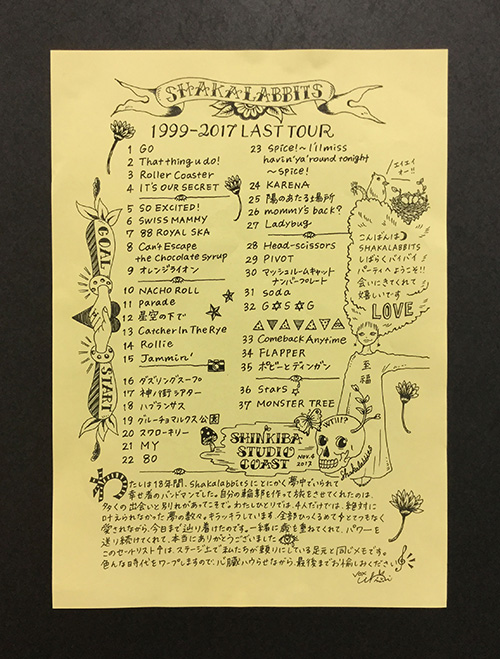 SHAKALABBITS
1999-2017 LAST TOUR
1 GO
2 That thing u do!
3 Roller Coaster
4 IT'S OUR SECRET
5 SO EXCITED!
6 SWISS MAMMY
7 88 ROYAL SKA
8 Can't Escape
the Chocolate Syrup
9 オレンジライオン
10 NACHO ROLL
11 Parade
12 星空の下で
13 Catcher In The Rye
14 Rollie
15 Jammin'
16 ダズリングスープ
17 神ノ街シアター
18 ハブランサス
19 グルーチョマルクス公園
20 スワローキリー
21 MY
22 80
23 Spice!~I'll miss
havin' ya' round tonight
~Spice!
24 KARENA
25 陽のあたる場所
26 mommy's back?
27 Ladybug
28 Head-scissors
29 PIVOT
30 マッシュルームキャット
ナンバープレート
31 soda
32 G☆S☆G
33 Comeback Anytime
34 FLAPPER
35 ポビーとディンガン
36 Stars
37 MONSTER TREE
GOAL
START
エイエイ
オー!!
こんばんは
SHAKALABBITS
しばらくバイバイ
パーティへようこそ!!
会いにきてくれて
嬉しいです
LOVE
至福
WTIII?
Shakalabbits
SHINKIBA
STUDIO
COAST
NOV.4
2017
わたしは18年間、Shakalabbitsにとにかく夢中でいられて
幸せ者のバンドマンでした。自分の輪郭を作って旅をさせてくれたのは、
多くの出会いと別れがあってこそ。わたしひとりでは、4人だけでは、絶対に
叶えられなかった夢の数々。キラッキラしています。全部ひっくるめて今とてつもなく
愛されながら、今日まで辿り着けたのです。一緒に歳を重ねてくれて、パワーを
送り続けてくれて、本当にありがとうございました
このセットリストは、ステージ上で私たちが頼りにしている足元と同じメモです。
色んな時代をワープしますので、心臓ハウらせながら、最後までお愉しみください
vox
Uki